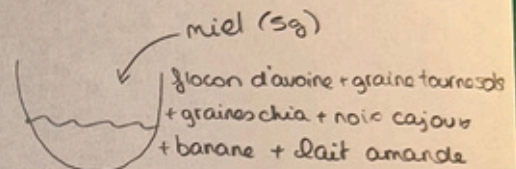 miel (5g)
flocon d'avoine + graine tournesols
+ graines chia + noix cajous
+ banane + lait amande